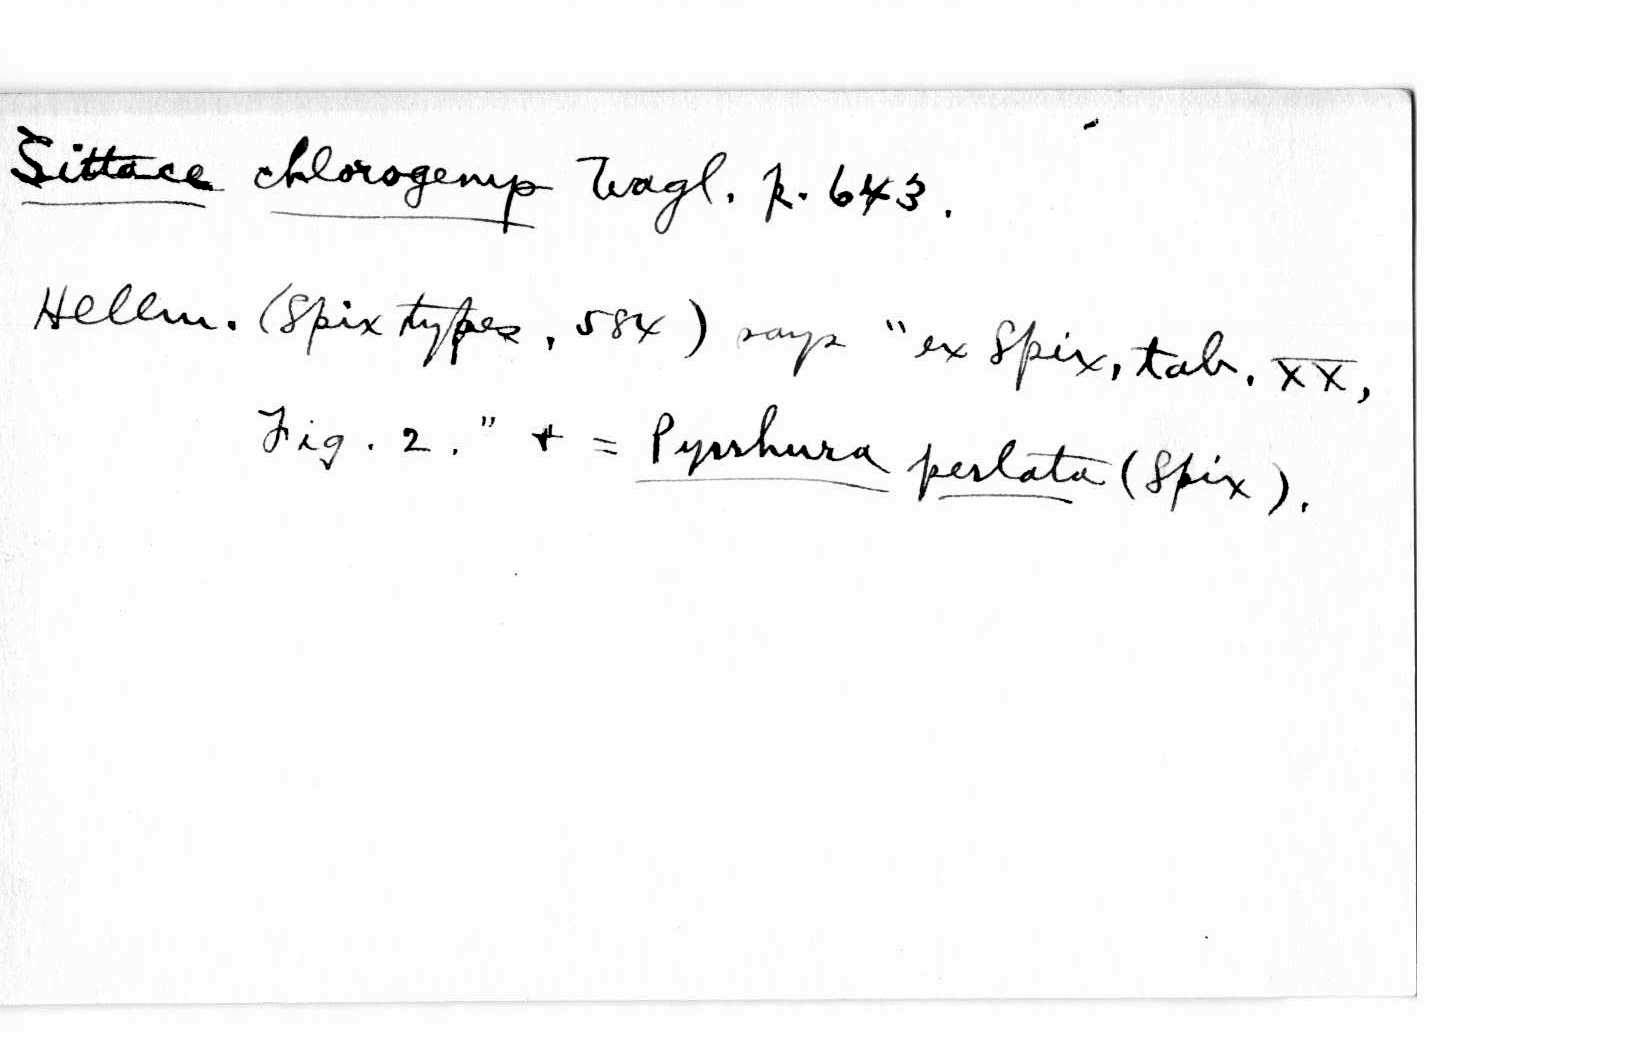 Sittace chlorogenys Wagl. p. 643.
Hellm. (Spix types, 584) says "ex Spix, tab. XX,
Fig. 2." + = Pyrrhura perlata (Spix).